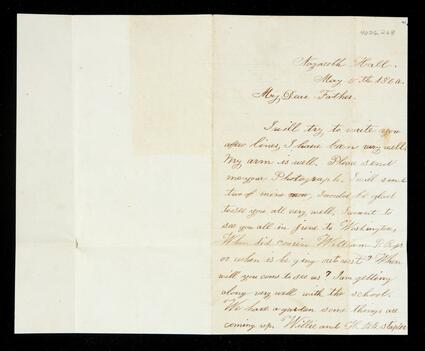 Nazareth Hall.
May 5th 186
My Dear Father.
I will try to write you
a few lines, I have been very well.
My arm is well. Please send
me your Photograph. I will send
two of mine now, I would be glad
to see you all very well, I want to
see you all in June to Washington,
When did cousin William
or when is he going out west? When
will you come to see us? I am getting
along very well with the school.
We have a garden some things are
coming up. Willie and